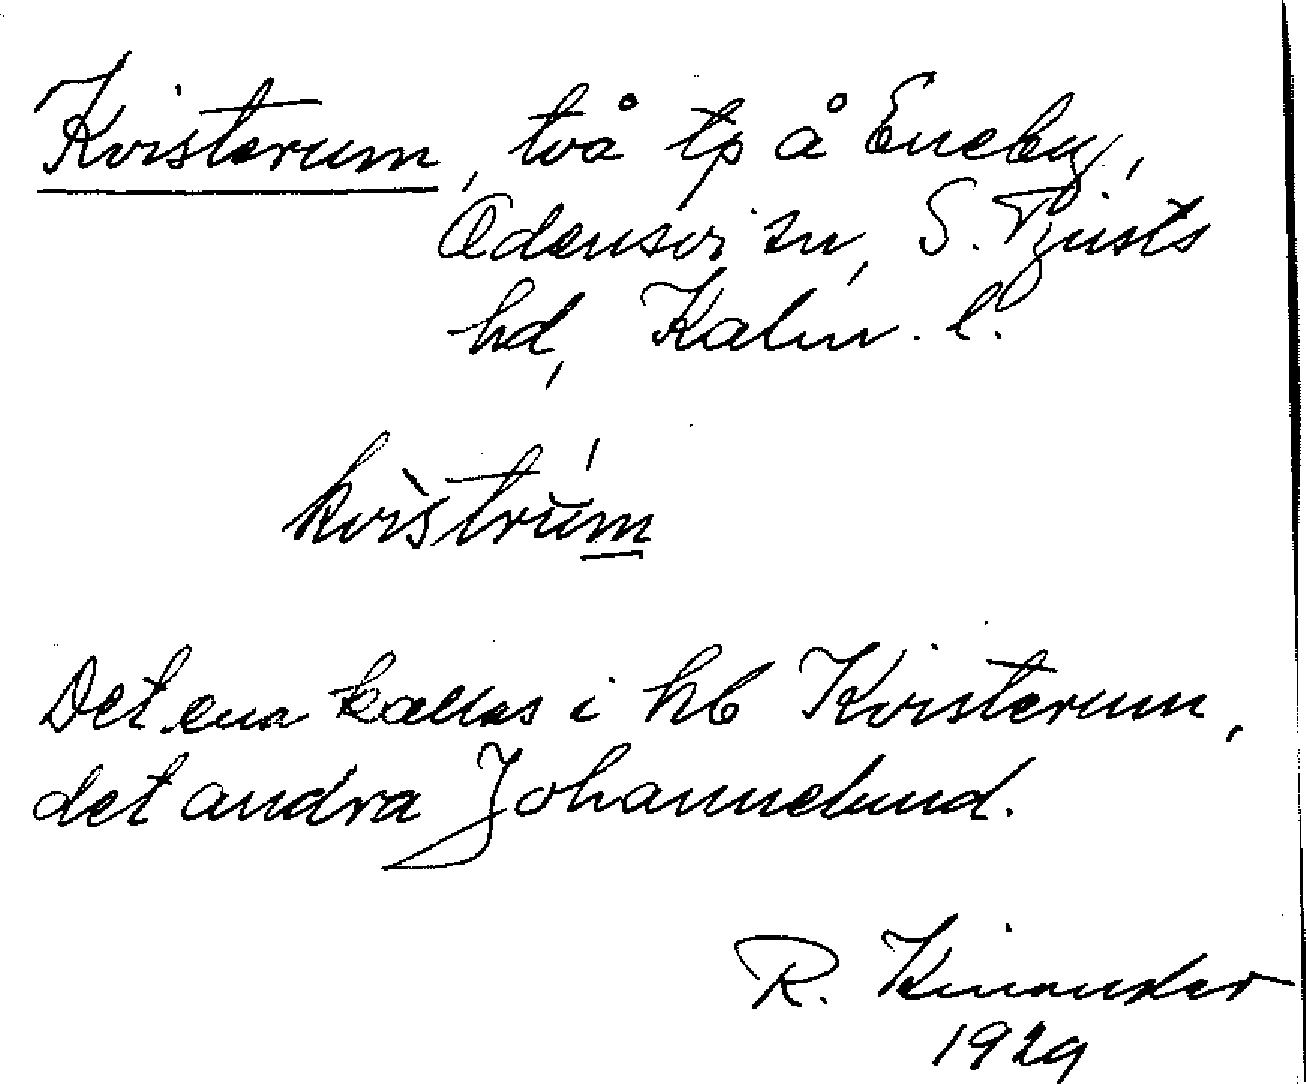 Kvisterum, två tp å Eneby,
Odensvi sn, S. Tjusts
hd, Kalm. l.
kvìstrúm
Det ena kallas i hb Kvisterum,
det andra Johannelund.
R. Kinander
1929